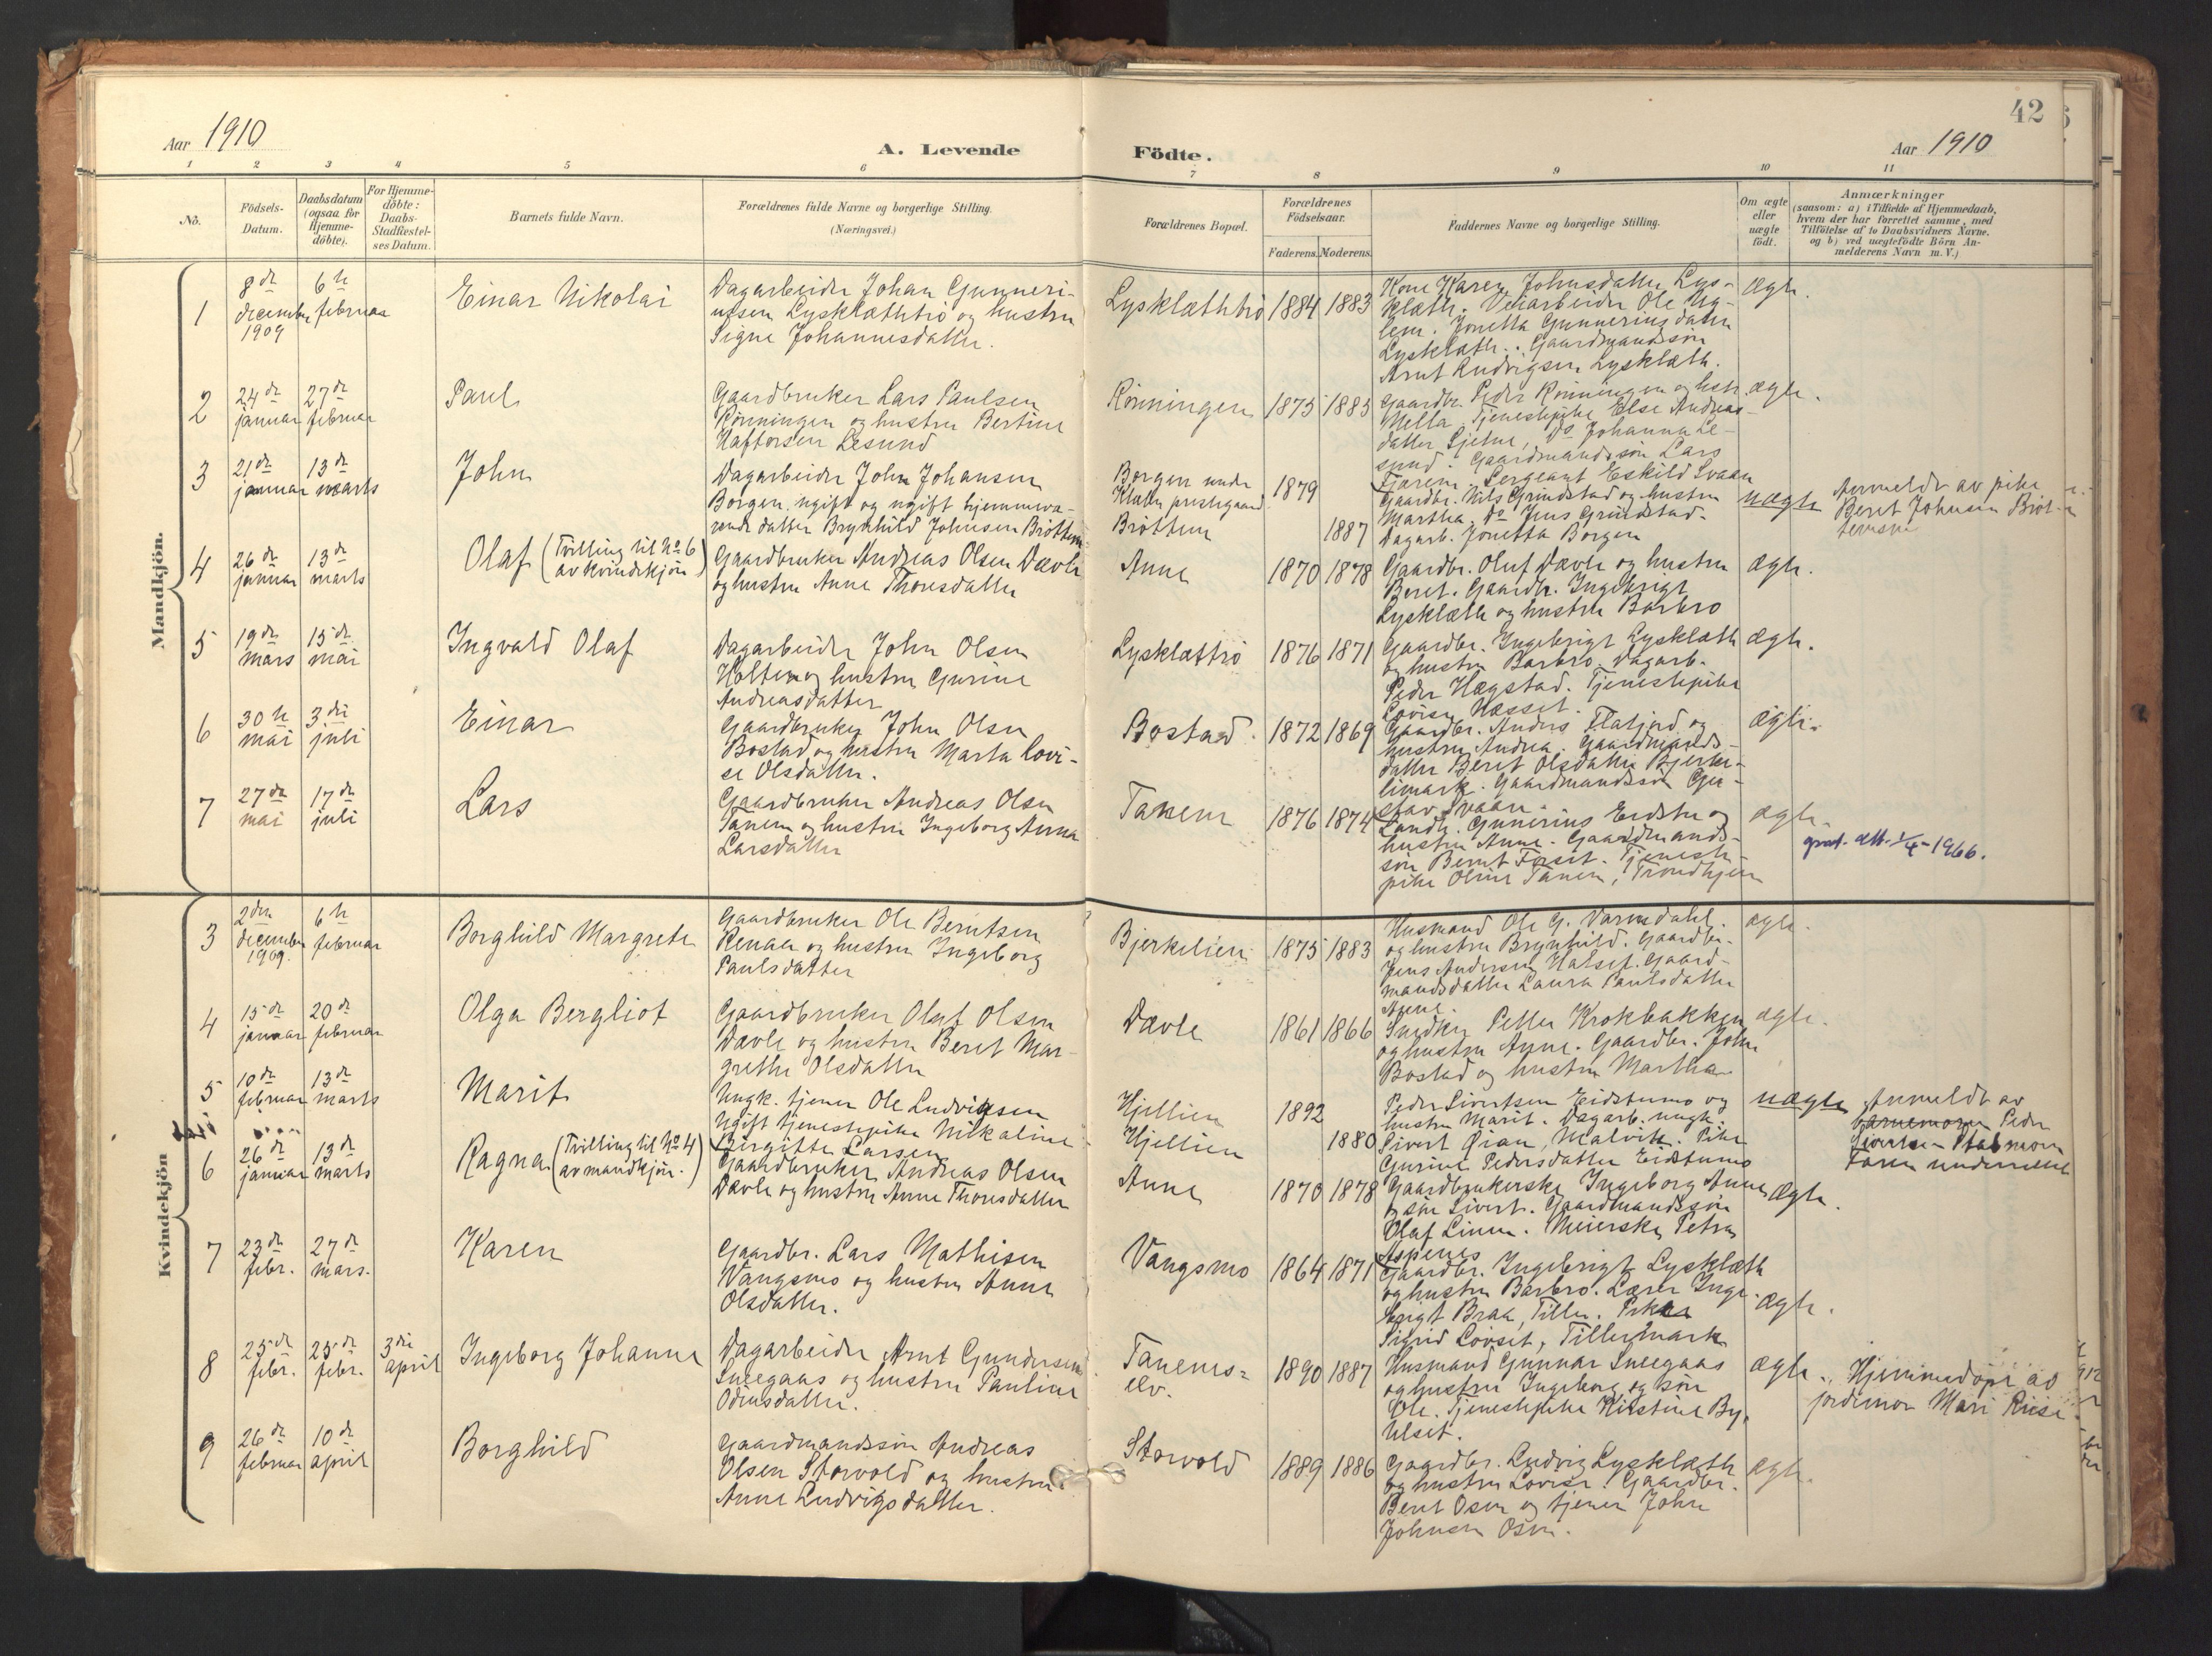 42
Aar 1910
A. Levende Födte.
Aar 1910
1 2 3 4 5 6 7 8 9 10 11
No. Födsels-Datum. Daabsdatum (ogsaa for Hjemme-döbte). For Hjemme-döbte: Daabs-Stadfæstel-ses Datum. Barnets fulde Navn. Forældrenes fulde Navne og borgerlige Stilling. (Næringsvei.) Forældrenes Bopæl. Forældrenes Födselsaar. Faderens. Moderens. Faddernes Navne og borgerlige Stilling. Om ægte eller uægte födt.
Anmærkninger
(saasom: a) i Tilfælde af Hjemmedaab,
hvem der har forrettet samme, med
Tilföielse af to Daabsvidners Navne,
og b) ved uægtefödte Börn An-
melderens Navn m. V.)
Mandkjön.
1
8de december 1909
6te februar
Einar Nikolai
Dagarbeider Johan Gunneri-
ussen Lysklæthtrö og hustru
Signe Johannesdatter.
Lysklæthtrö
1884 1883
Kone Karen Johnsdatter Lys-
klæth. Veiarbeider Ole Ug-
lem. Jonetta Gunneriusdatter
Lysklæth. Gaardmandssön
Arnt Ludvigsen Lysklæth.
ægte.
2
24de januar
27de februar
Paul
Gaardbruker Lars Paulsen
Rönningen og hustru Bertine
Haftorsen Lesund
Rönningen
1875 1885
Gaardbr. Peder Rönningen og hstr.
Mella. Tjenestepike Else Andreas-
datter Sjetne, Do Johanna Le-
sund. Gaardmandssön Lars
Tjærem. Sergeant Eskild Svaan
ægte.
3
21de januar
13de marts
John
Dagarbeider John Johansen
Borgen ugift og ugift hjemmevæ-
rende datter Brynhild Johnsen Bröttem
Borgen under
Klæbu prestegaard
Bröttem
1879
1887
Gaardbr. Nils Grindstad og hustru
Martha. Do Jens Grindstad.
Dagarb. Jonetta Borgen
uægte
Anmeldt av pike
Beret Johnsen Bröt-
4
26de januar
13de marts
Olaf (Tvilling til No 6 av kvindekjön)
Gaardbruker Andreas Olsen Dævle
og hustru Anne Thoresdatter
Anne
1870 1878
Gaardbr. Oluf Dævle og hustru
Beret. Gaardbr. Ingebrigt
Lysklæth og hustru Barbro
ægte.
5
19de mars
15de mai
Ingvald Olaf
Dagarbeider John Olsen
Holten og hustru Gurine
Andreasdatter
Lysklættrö
1876 1871
Gaardbr. Ingebrigt Lysklæth
og hustru Barbro. Dagarb.
Peder Hægstad. Tjenestepike
Lovise Næsset.
ægte.
6
30te mai
3die juli
Einar
Gaardbruker John Olsen
Bostad og hustru Marta Lovi-
se Olsdatter.
Bostad
1872 1869
Gaardbr. Anders Flatjord og
hustru Andrea. Gaardmands-
datter Beret Olsdatter Bjerke-
limark. Gaardmandssön Gu-
stav Svaan.
ægte.
7
27de mai
17de juli
Lars
Gaardbruker Andreas Olsen
Tanem og hustru Ingeborg Anna
Larsdatter
Tanem
1876 1874
Landh. Gunnerius Eidstu og
hustru Anne. Gaardmands-
sön Bernt Forset. Tjeneste-
pike Oline Tanem, Trondhjem
ægte.
grat. att. 1/4-1966.
Kvindekjön
3
2den december 1909.
6te februar
Borghild Margrete
Gaardbruker Ole Berntsen
Renaa og hustru Ingeborg
Paulsdatter
Bjerkelien
1875 1883
Husmand Ole G. Varmdahl
og hustru Brynhild. Gaardbr.
Jens Andersen Halset. Gaard-
mandsdatter Laura Paulsdatter
ægte.
4
15de januar
20de februar
Olga Bergliot
Gaardbruker Oluf Olsen
Dævle og hustru Beret Mar-
grethe Olsdatter
Dævle
1861 1866
Snedker Petter Krokbakken
og hustru Anne. Gaardbr. John
Bostad og hustru Martha
ægte.
5
10de februar
13de marts
Marit
Ungk. tjener Ole Ludviksen
Ugift tjenestepike Nikoline
Birgitte Larsen
Hjellien
Hjellien
1892
1880
Peder Sivertsen Eidstumo og
hustru Marit. Dagarb. ungk.
Sivert Öian, Malvik. Pike
Gurine Pedersdatter Eidstumo
uægte
Anmeldt av
barnemoren Peder
Sivertsen
Faren
6
26de januar
13de marts
Ragna (Tvilling til No 4 av mandkjön.)
Gaardbruker Andreas Olsen
Dævle og hustru Anne Thoresdatter
Anne
1870 1878
Gaardbrukerske Ingeborg Anne
og sön Sivert. Gaardmandssön
Olaf Linem. Meierske Petra
Aspenes
ægte.
7
23de febr.
27de mars.
Karen
Gaardbr. Lars Mathisen
Vangsmo og hustru Anne
Olsdatter.
Vangsmo
1864 1871
Gaardbr. Ingebrigt Lysklæth
og hustru Barbro. Lærer Inge-
brigt Braa, Tiller. Pike
Sigrid Lövset, Tillermark
ægte.
8
25de febr.
25de febr.
3die april
Ingeborg Johanne
Dagarbeider Arnt Gundersen
Sneegaas og hustru Pauline
Odinsdatter.
Tanems-
elv.
1890 1887
Husmand Gunnar Sneegaas
og hustru Ingeborg og sön
Ole. Tjenestepike Kirstine By,
Ulset.
ægte.
Hjemmedöpt av
jordemor Mari Riise
9
26de februar
10de april
Borghild
Gaardmandssön Andreas
Olsen Storvold og hustru
Anne Ludvigsdatter.
Storvold
1889 1886
Gaardbr. Ludvig Lysklæth
og hustru Lovise. Gaardbr.
Bernt Osen og tjener John
Johnsen Osen.
ægte.